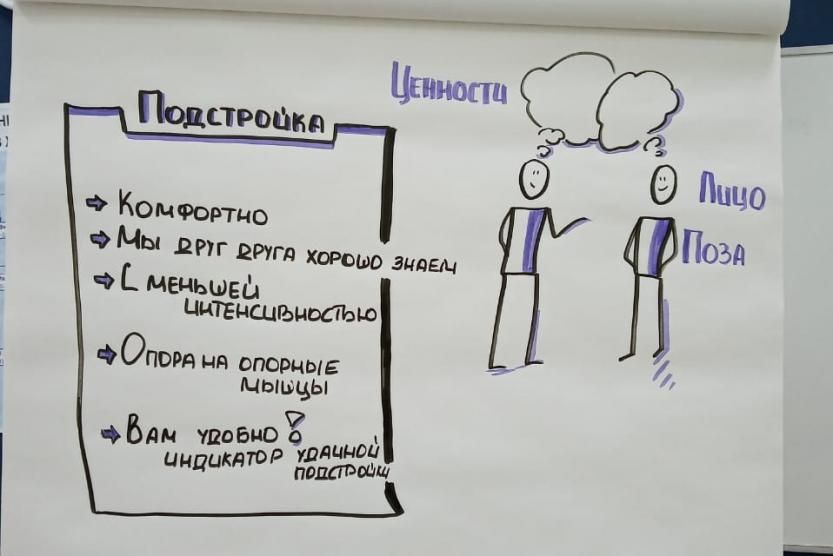 Подстройка
Комфортно
Мы друг друга хорошо знаем
С меньшей
интенсивностью
Опора на опорные
мышцы
Вам удобно!
индикатор удачной
подстройки
Ценности
Лицо
Поза